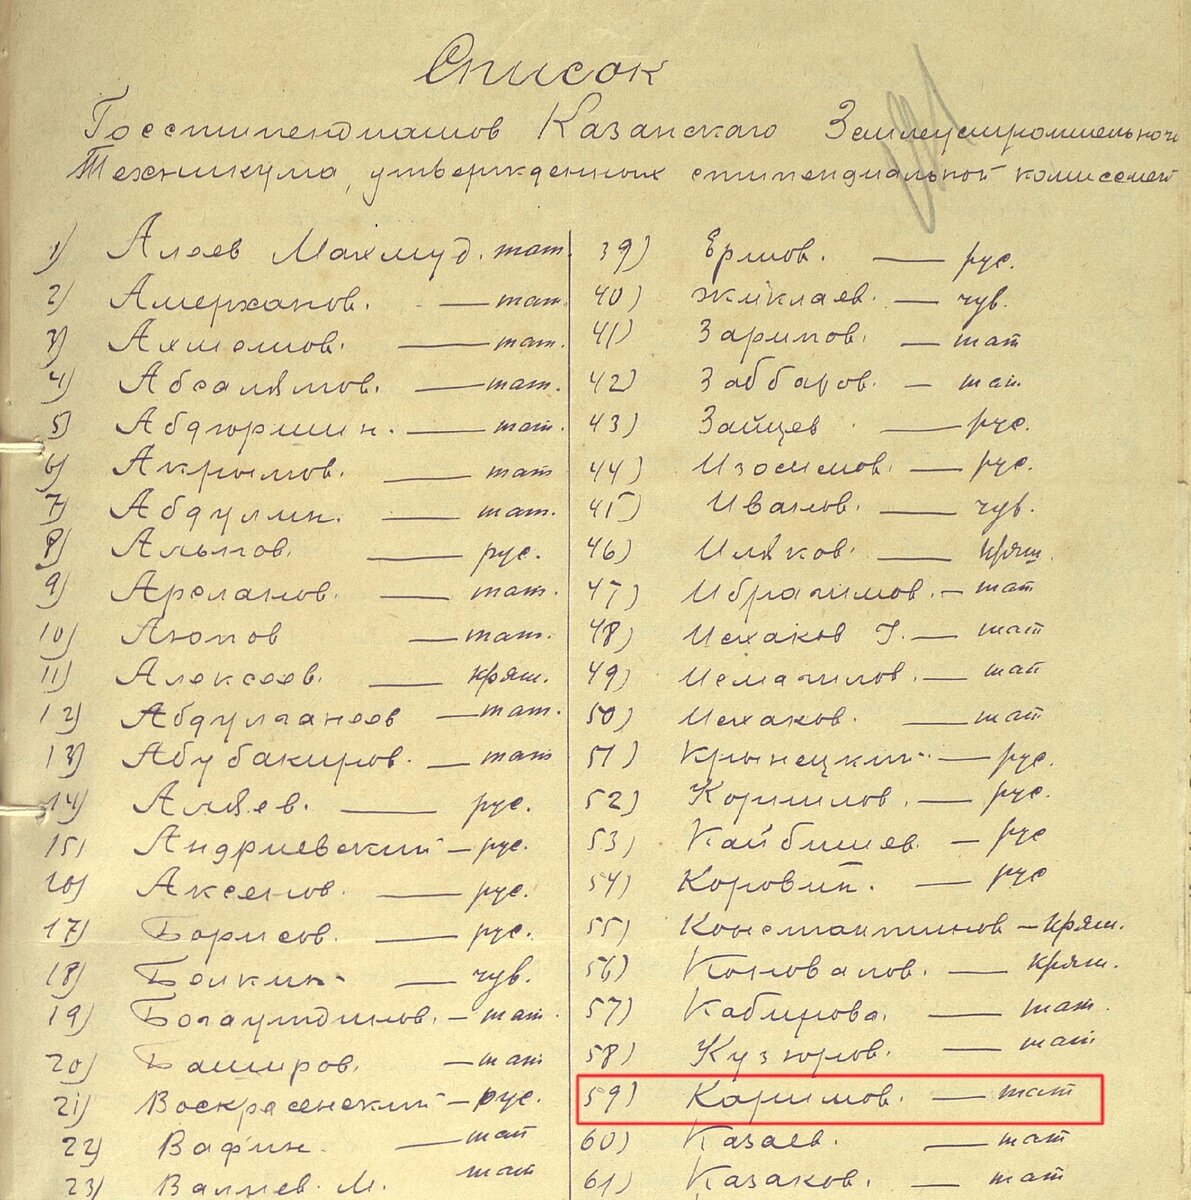 Список
Госстипендиатов Казанскаго Землеустроительного
Техникума, утвержденных стипендиальной комиссией
1) Алеев Махмуд. тат.
2) Амерханов. — тат.
3) Ахметов. — тат.
4) Абсалямов. — тат.
5) Абдюршин. — тат.
6) Акрымов. — тат
7) Абдулин. — тат.
8) — рус.
9) Арсланов. — тат.
10) Аюпов — тат.
11) Алексеев. — кряш.
12) Абдулганеев — тат.
13) Абубакиров. — тат
14) Аляев. — рус.
15) Андриевский — рус.
16) Аксенов. — рус.
17) Борисов. — рус.
18) — чув.
19) Богаутдинов. — тат.
20) Баширов. — тат
21) Воскресенский — рус.
22) Вафин. — тат
23) Валиев. М. тат
39) — рус.
40) — чув.
41) Зарипов. — тат
42) Заббаров. — тат.
43) Зайцев. — рус.
44) Изосимов. — рус.
45) Иванов. — чув.
46) Иляков. — кряш.
47) Ибрагимов. — тат
48) Исхаков — тат
49) Исмагилов. — тат
50) Исхаков. — тат
51) Крынецкий — рус.
52) Корнилов. — рус.
53) Кайбишев. — рус
54) Коровин. — рус
55) Константинов — кряш.
56) Коновалов. — кряш.
57) Кабирова. — тат.
58) Кузюров. — тат
59) Каримов. — тат
60) Казаев. — тат
61) Казаков. — тат